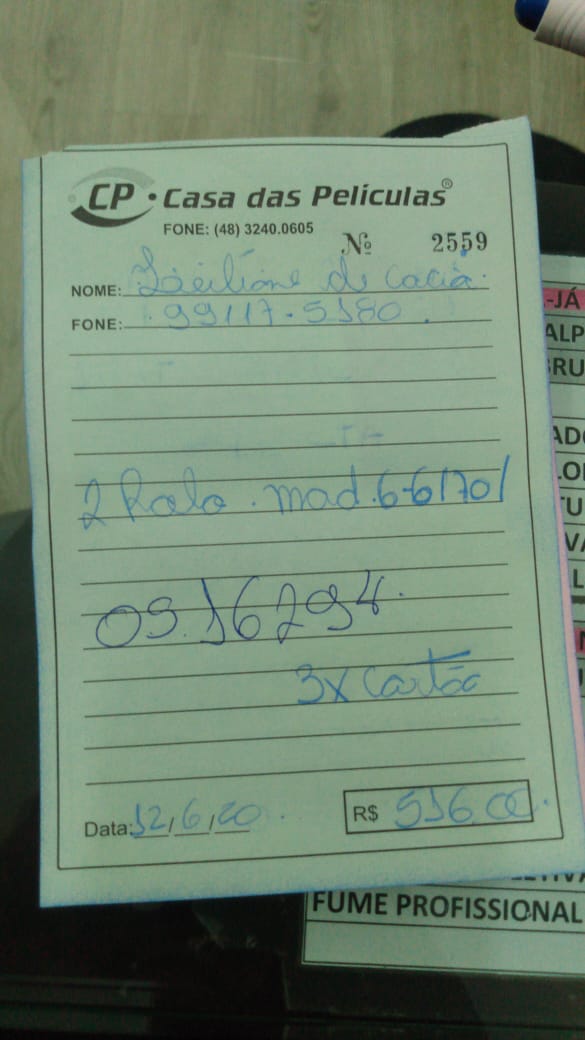 CP • Casa das Películas®
FONE: (48) 3240.0605
Nº 2559
NOME: de
FONE: 99117-5180
2 Rolo. mad. 6-6170/
OS.16294.
3x cartão
Data: 12/6/20. R$ 516,00.
-JÁ
ALP
BRU
ADO
LOI
TU
VA
L
FUME PROFISSIONAL